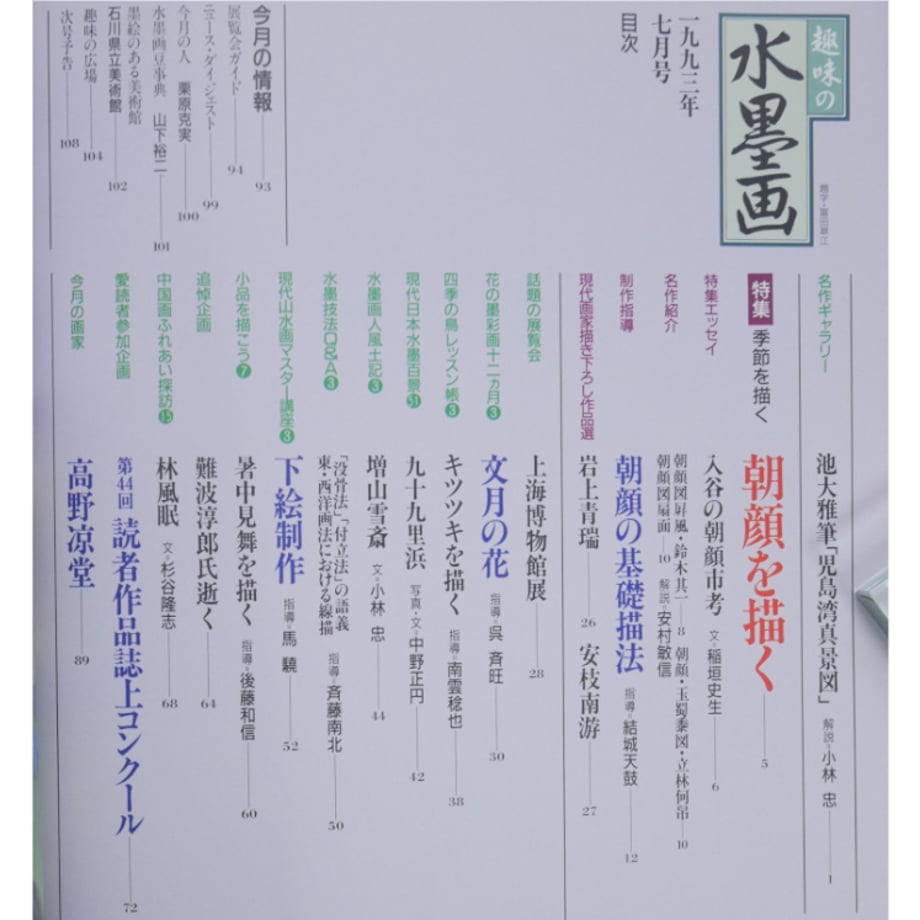 趣味の
水墨画
題字・富田翠江
一九九三年
七月号
目次
今月の情報 93
展覧会ガイド 94
ニュース・ダイジェスト 99
今月の人 栗原克実 100
水墨画豆事典 山下裕二 101
墨絵のある美術館
石川県立美術館 102
趣味の広場 104
次号予告 108
名作ギャラリー 池大雅筆「児島湾真景図」 解説=小林 忠 1
特集 季節を描く 朝顔を描く 5
特集エッセイ 入谷の朝顔市考 文=稲垣史生 6
名作紹介 朝顔図屏風・鈴木其一 8 朝顔・玉蜀黍図・立林何帠 10
朝顔図扇面 10 解説=安村敏信
制作指導 朝顔の基礎描法 指導=結城天鼓 12
現代画家描き下ろし作品選 岩上青瑞 26 安枝南游 27
話題の展覧会 上海博物館展 28
花の墨彩画十二ヵ月❸ 文月の花 指導=呉 斉旺 30
四季の鳥レッスン帳❸ キツツキを描く 指導=南雲稔也 38
現代日本水墨百景51 九十九里浜 写真・文=中野正円 42
水墨画人風土記❸ 増山雪斎 文=小林 忠 44
水墨技法Q&A❸ 「没骨法」「付立法」の語義
東・西洋画法における線描 指導=斉藤南北 50
現代山水画マスター講座❸ 下絵制作 指導=馬 驍 52
小品を描こう❼ 暑中見舞を描く 指導=後藤和信 60
追悼企画 難波淳郎氏逝く 64
中国画ふれあい探訪⓯ 林風眠 文=杉谷隆志 68
愛読者参加企画 第44回 読者作品誌上コンクール 72
今月の画家 高野涼堂 89